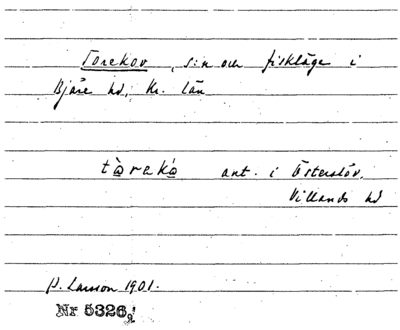 Torekov, s:n och fiskläge i
Bjäre hd, Kr. län
tòrekó ant. i Österslöv,
Villands hd
P. Larsson 1901.
Nr 5326